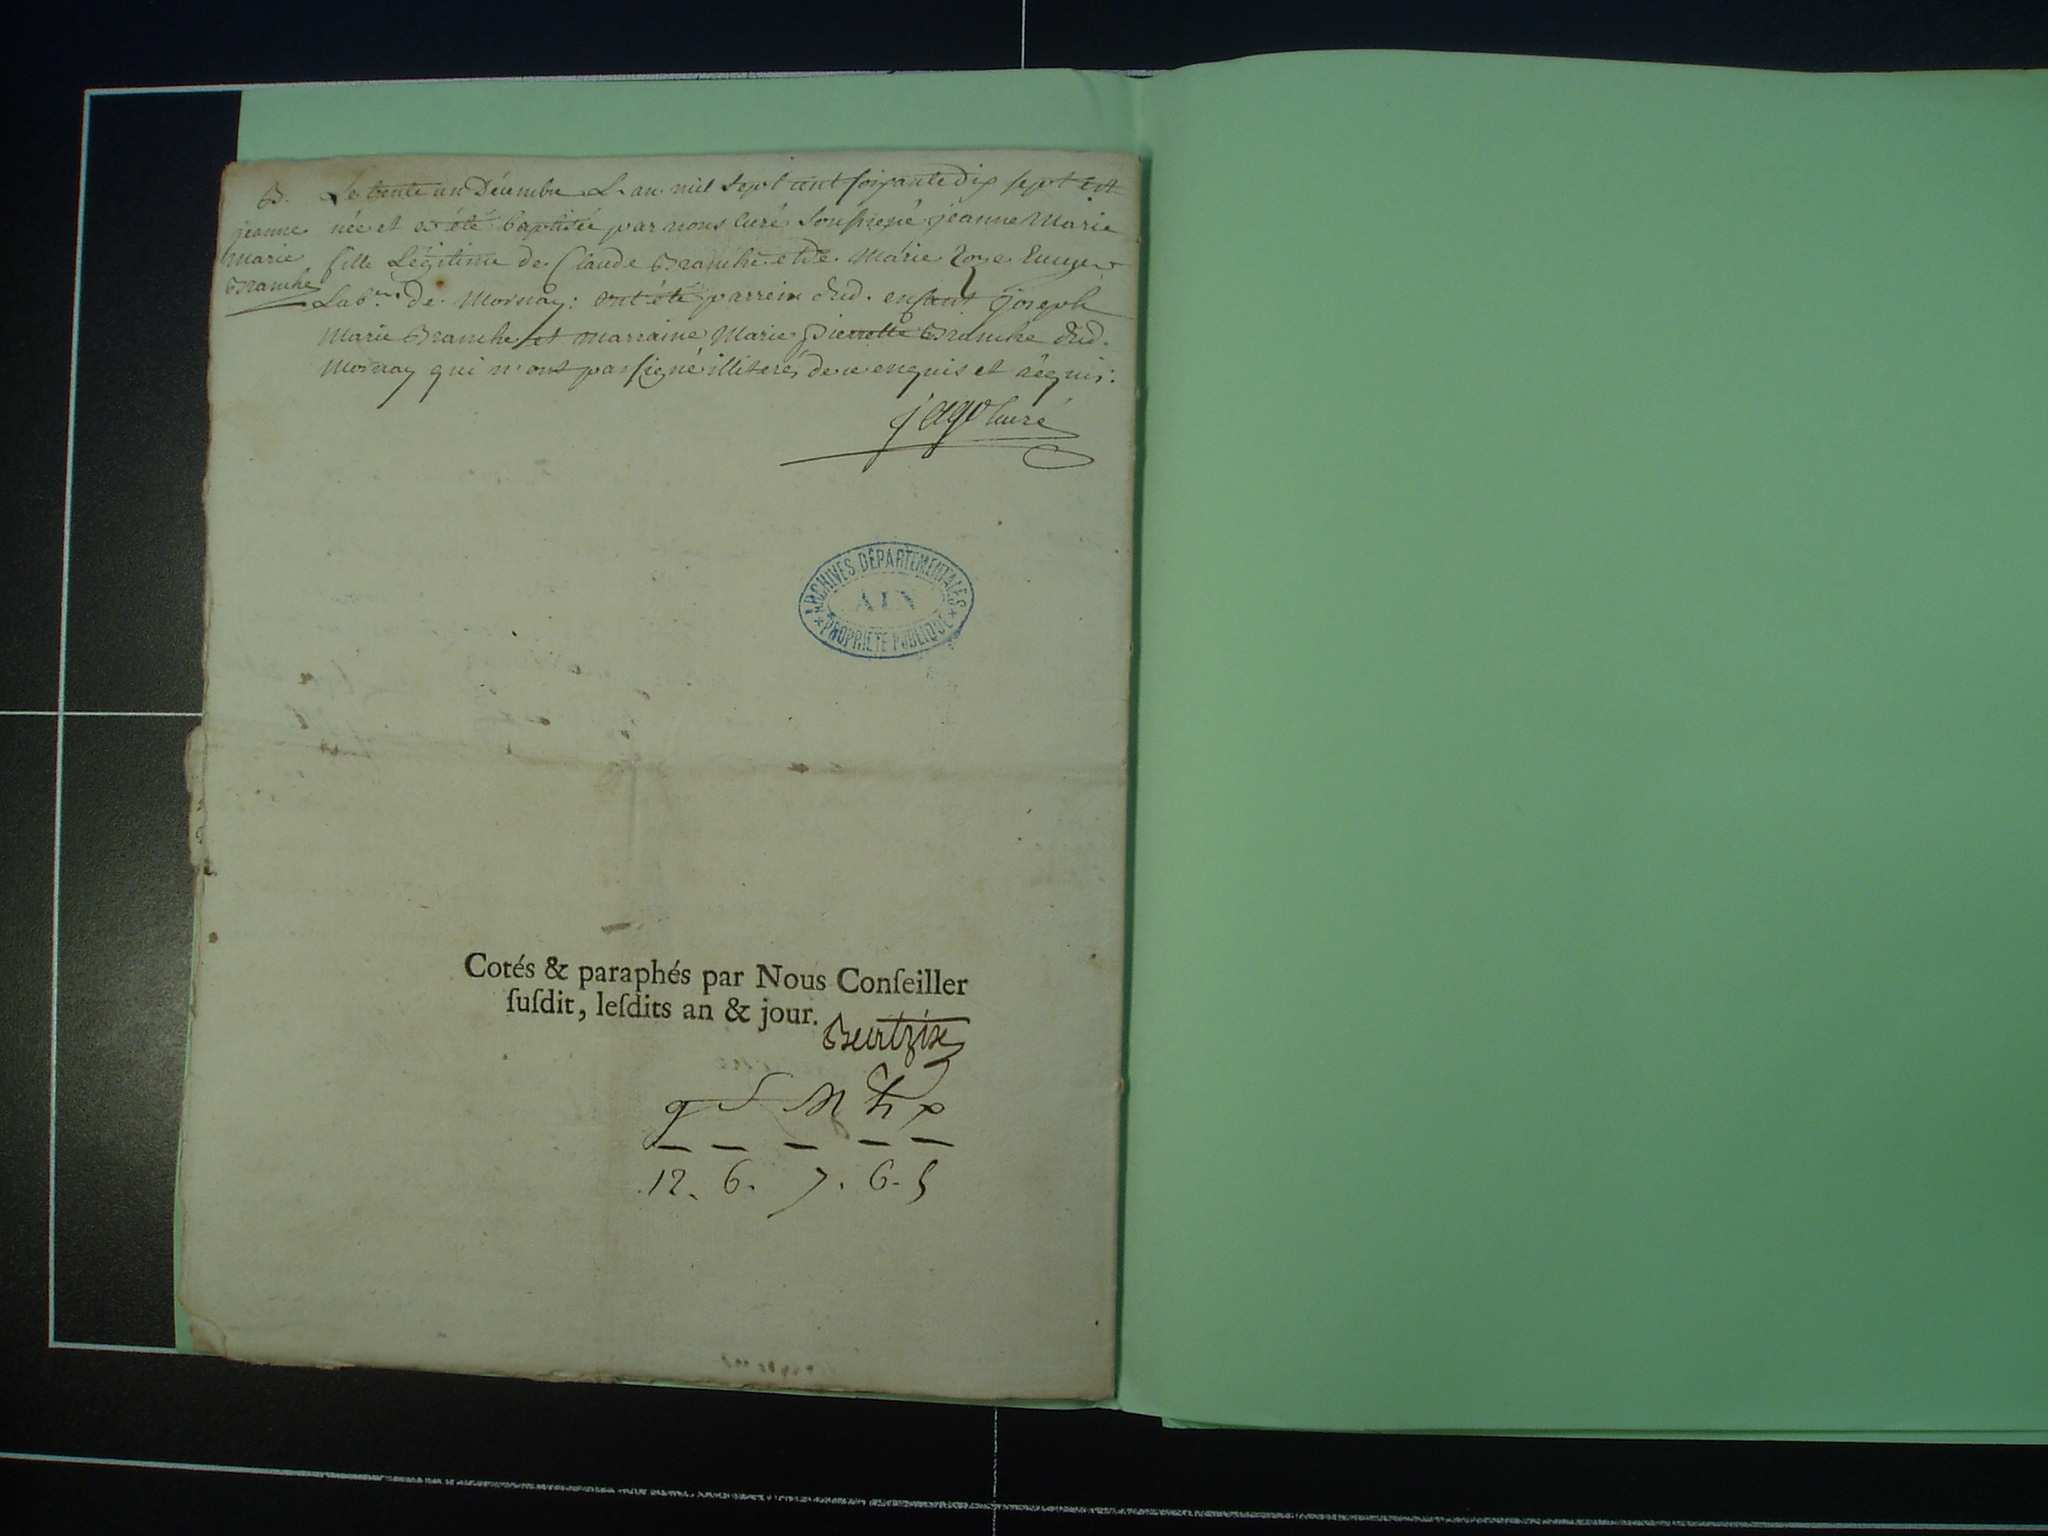 B. Le trente un Décembre L'an mil sept cent soixante dix sept est
jeanne née et a été baptisée par nous curé soussigné jeanne Marie
marie fille Légitime de Claude Branche et de Marie
Branche Lab.ur de Mornay: ont été parrein dud. enfant joseph
Marie Branche et marraine Marie pierrette Branche dud.
Mornay qui n'ont pas signé illiterés de ce enquis et réquis:
jago curé
ARCHIVES DÉPARTEMENTALES
AIN
PROPRIÉTÉ PUBLIQUE
Cotés & paraphés par Nous Conſeiller
ſuſdit, leſdits an & jour.
12. 6. 7. 6. 5